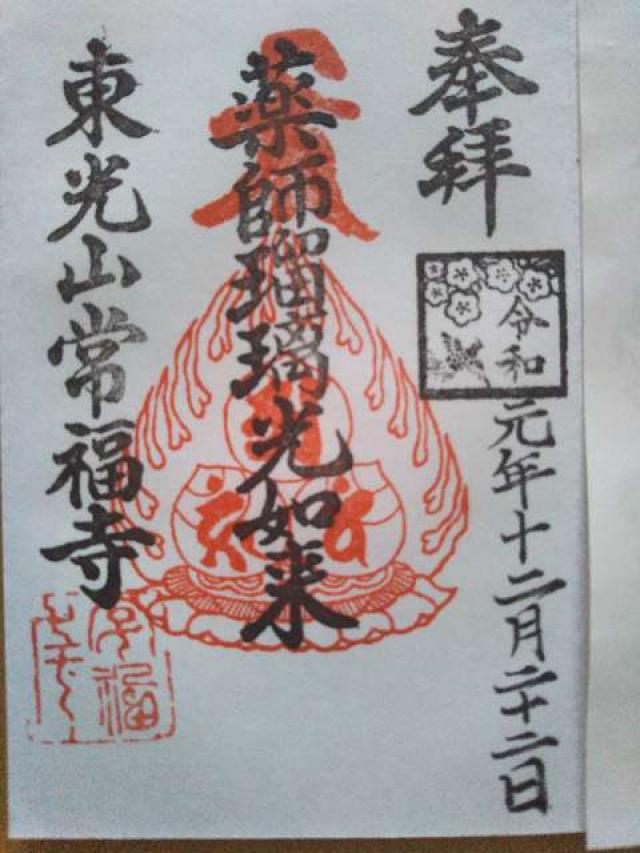 奉拝
令和
元年十二月二十二日
薬師瑠璃光如来
東光山常福寺